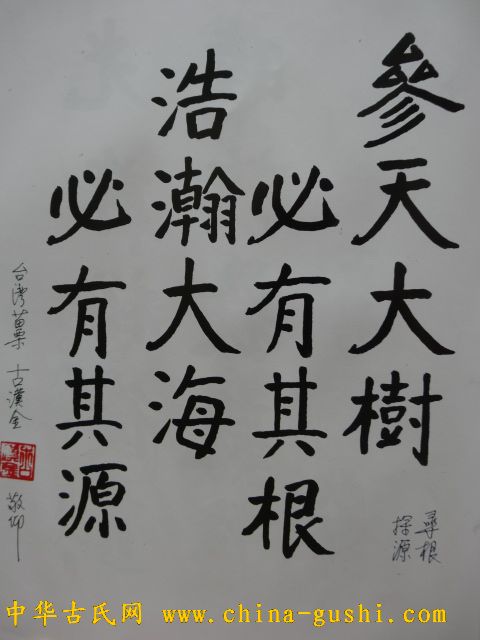 參天大樹
必有其根
浩瀚大海
必有其源
尋根
探源
台灣 古漢金
敬仰
中华古氏网 www.china-gushi.com